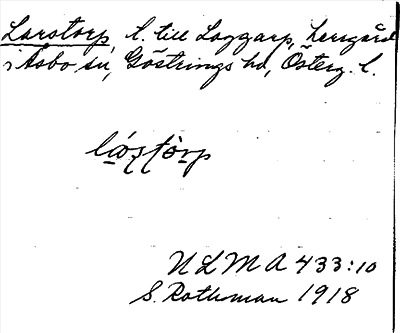 Larstorp, l. till Loggarp, herrgård
i Asbo sn, Göstrings hd, Österg. l.
NLMA 433:10
S. Rothman 1918